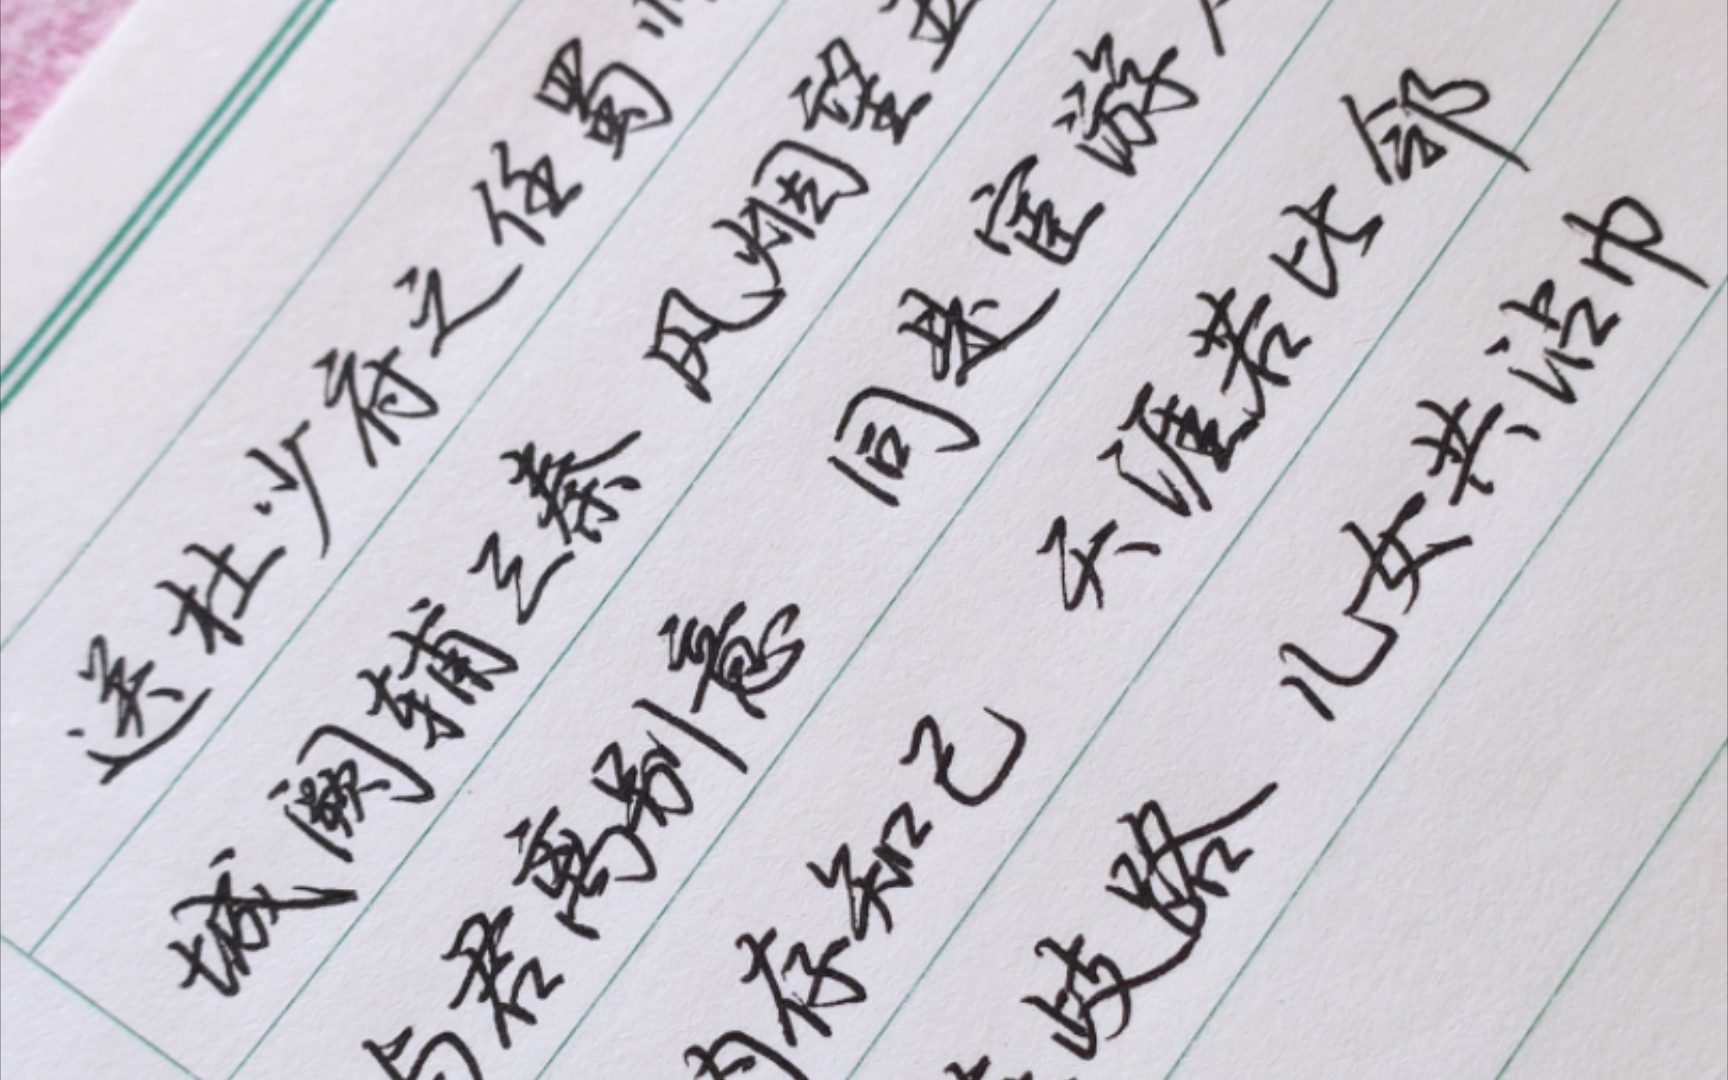 送杜少府之任蜀州
城阙辅三秦 风烟望五
与君离别意 同是宦游人
内存知己 天涯若比邻
在歧路 儿女共沾巾